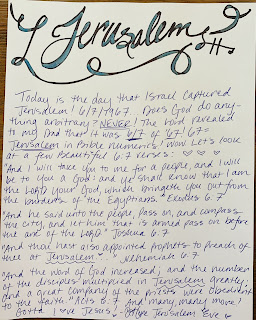 Jerusalem
Today is the day that Israel captured
Jerusalem! 6/7/1967. Does God do any-
thing arbitrary? NEVER! The Lord revealed
to my Dad that it was 6/7 of '67! 67=
Jerusalem in Bible numerics! Now let's look
at a few beautiful 6:7 verses:
"And I will take you to me for a people, and I will
be to you a God: and ye shall know that I am
the LORD your God, which bringeth you out from
the burdens of the Egyptians." Exodus 6:7
"And he said unto the people, Pass on, and compass
the city, and let him that is armed pass on before
the ark of the LORD." Joshua 6:7
"And thou hast also appointed prophets to preach of
thee at Jerusalem." - Nehemiah 6:7
"And the word of God increased; and the number
of the disciples multiplied in Jerusalem greatly;
and a great company of the priests were obedient
to the faith." Acts 6:7 And many, many more!
Gotta love Jesus! - Hope Jerusalem Eve 6